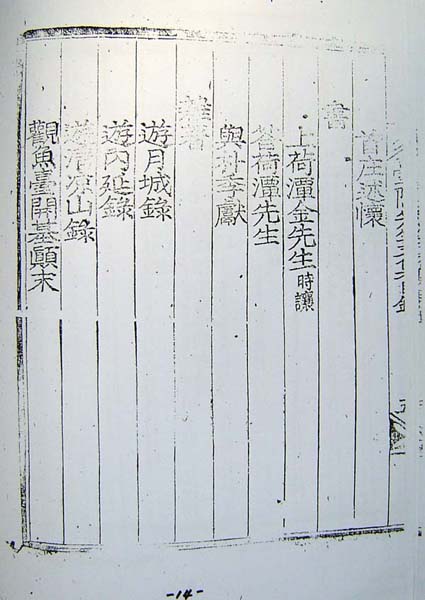 皆庄述懷
書
上荷潭金先生時讓
答荷潭先生
與朴季獻
雜著
遊月城錄
遊內延錄
遊淸凉山錄
觀魚臺開基顚末
-14-